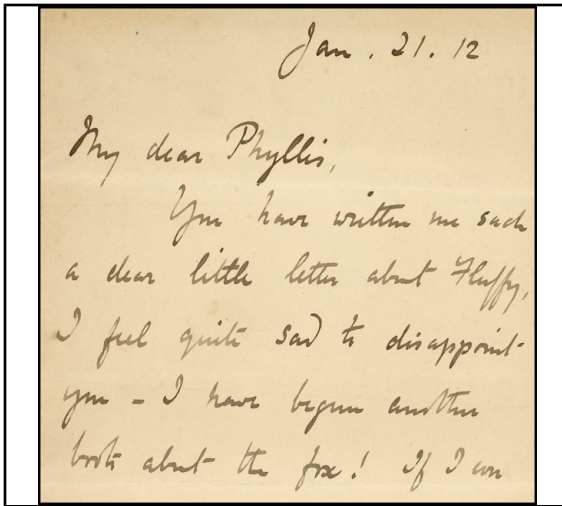 Jan. 21. 12
My dear Phyllis,
You have written me such
a dear little letter about Fluffy,
I feel quite sad to disappoint
you - I have begun another
book about the fox! If I